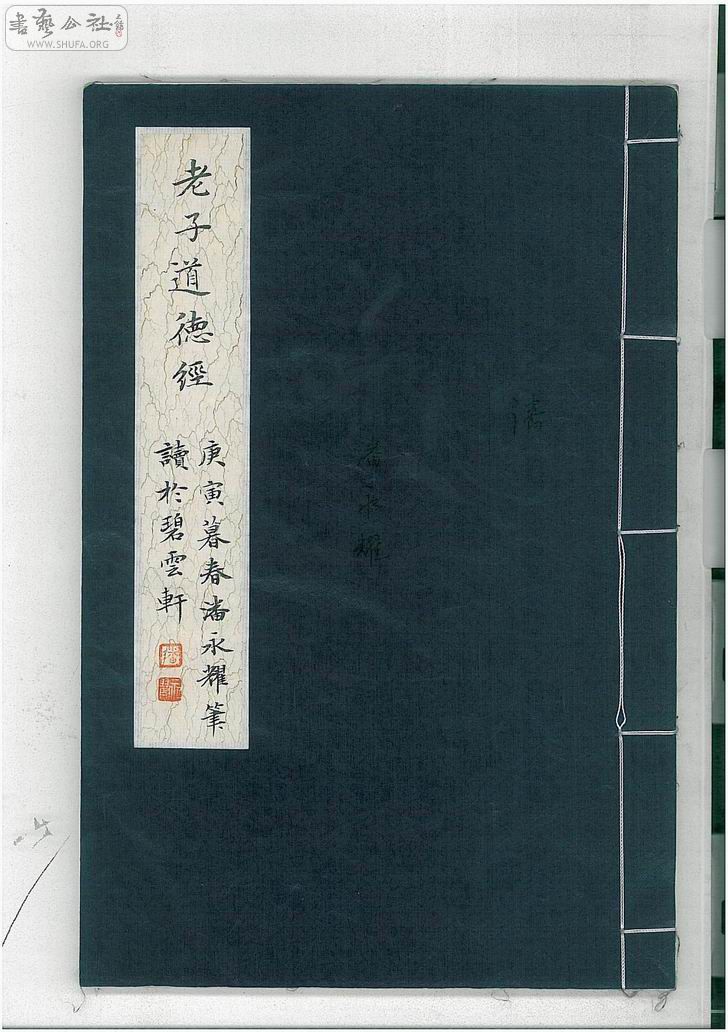 書藝公社
WWW.SHUFA.ORG
老子道德經
庚寅暮春潘永耀筆
讀於碧雲軒
潘永耀
潘